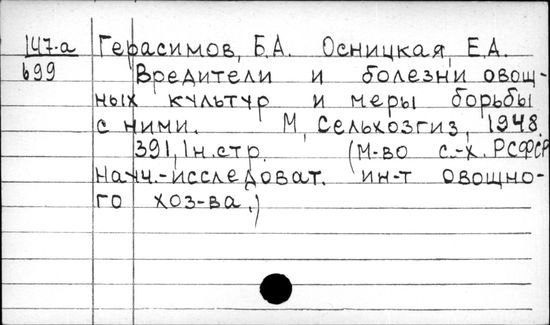 147-а Герасимов, Б.А. Осницкая, Е.А.
699 Вредители и болезни овощ-
ных культур и меры борьбы
с ними. М, Сельхозгиз, 1948.
391, 1 н.стр. (М-во с.-х. РСФСР
Науч.-исследоват. ин-т овощно-
го хоз-ва.)